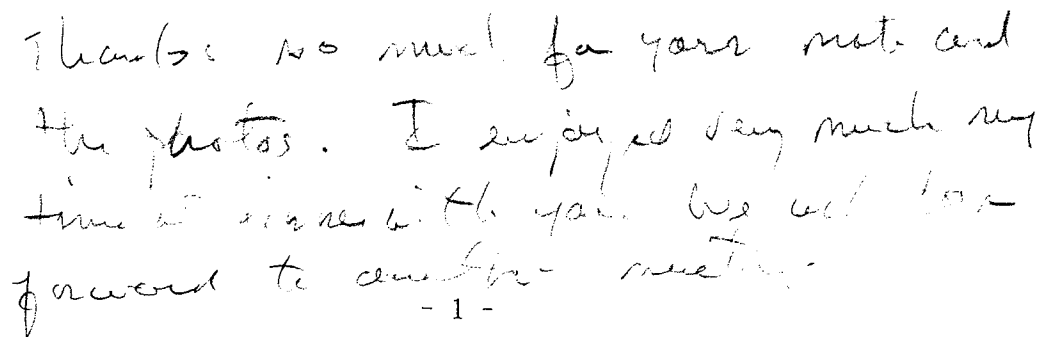 Thanks so much for your note and
the photos. I enjoyed very much my
time at dinner with you. We will look
forward to another meeting.
- 1 -